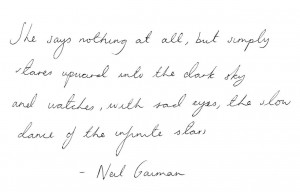 She says nothing at all, but simply
stares upward into the dark sky
and watches, with sad eyes, the slow
dance of the infinite stars
- Neil Gaiman